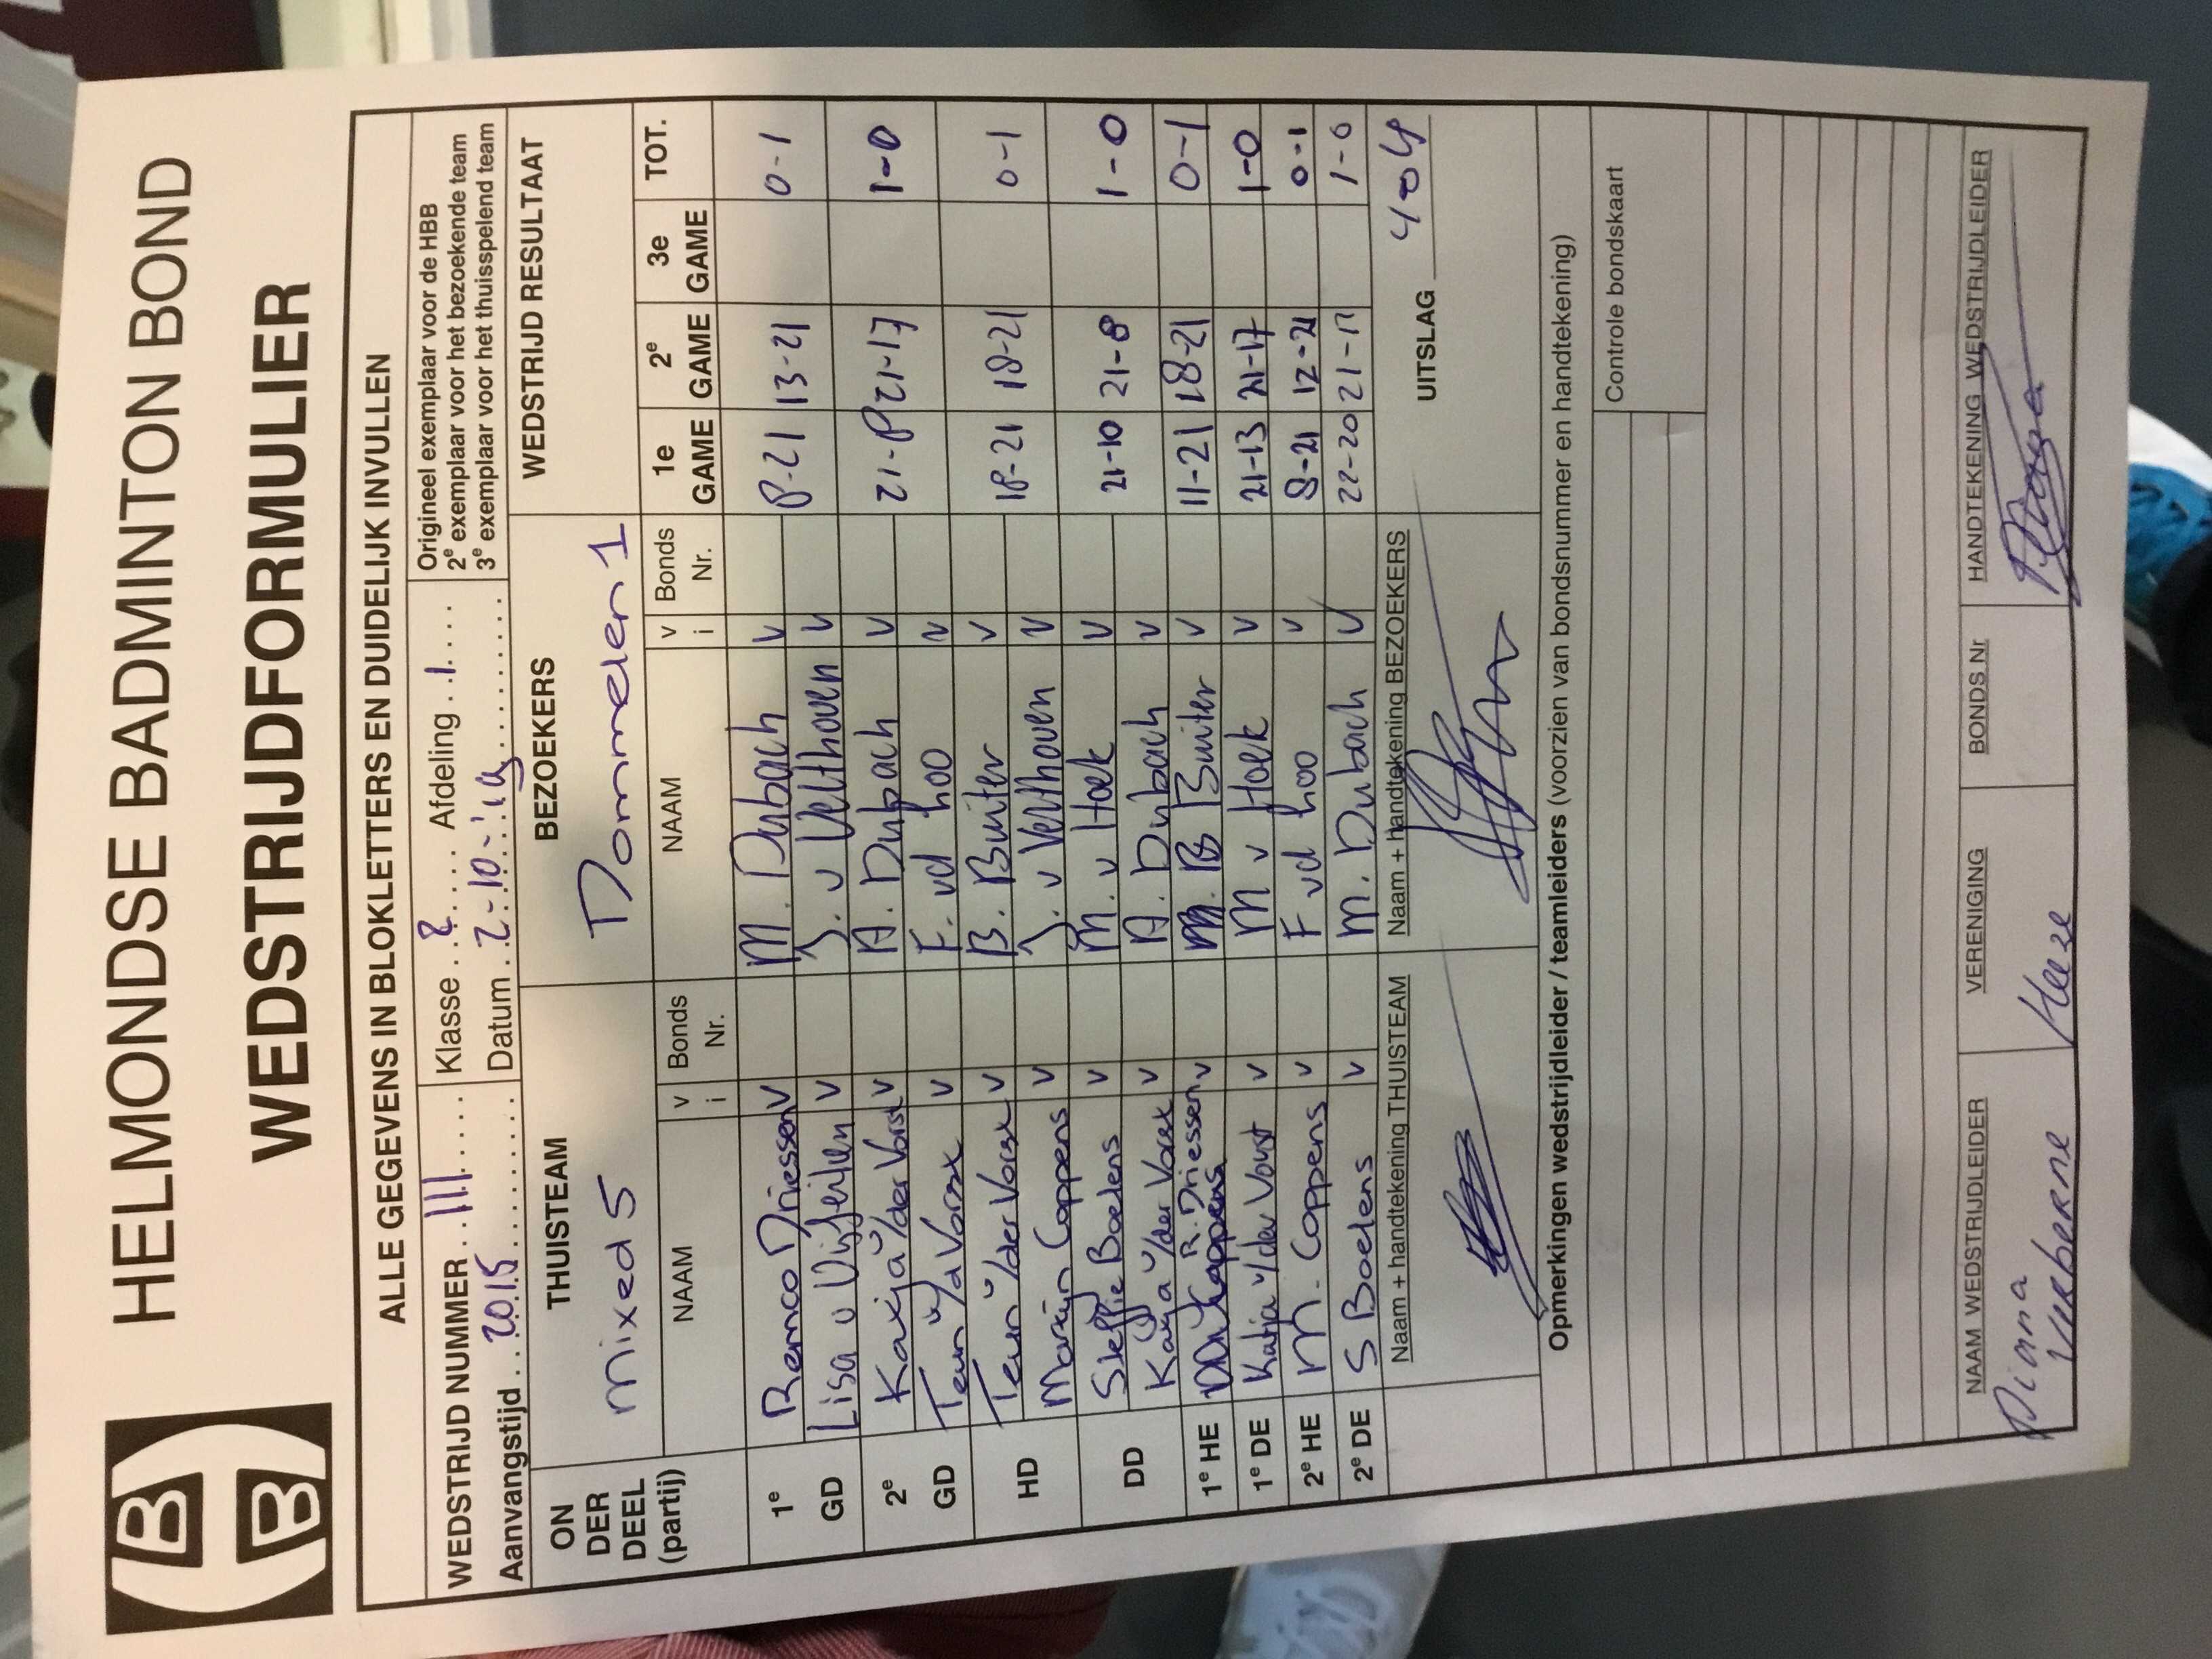 HELMONDSE BADMINTON BOND
WEDSTRIJDFORMULIER
B B
ALLE GEGEVENS IN BLOKLETTERS EN DUIDELIJK INVULLEN
WEDSTRIJD NUMMER . . 111 . . . . Klasse . . 2 . . . . Afdeling . . 1 . . . .
Aanvangstijd . . . 20.15 . . . . . . . . Datum . . 2-10-'19 . . . . . . . .
Origineel exemplaar voor de HBB
2e exemplaar voor het bezoekende team
3e exemplaar voor het thuisspelend team
ON DER DEEL (partij) THUISTEAM BEZOEKERS WEDSTRIJD RESULTAAT
mixed 5 Dommelen 1
NAAM v i Bonds Nr. NAAM v i Bonds Nr. 1e GAME 2e GAME 3e GAME TOT.
1e GD Remco Driessen v M. Dubach v 8-21 13-21 0-1
Lisa v Vijfeijken v J. v Velthoven v
2e GD Katja v/der Vorst v A. Dubach v 21-8 21-17 1-0
Teun v/d Vorst v F. vd hoo v
HD Teun v/der Vorst v B. Buiter v 18-21 18-21 0-1
Marijn Coppens v J. v Velthoven v
DD Steffie Boelens v M. v Hoek v 21-10 21-8 1-0
Katja v/der Vorst v A. Dubach v
1e HE R. Driessen v B Buiter v 11-21 18-21 0-1
1e DE Katja v/der Vorst v M v Hoek v 21-13 21-17 1-0
2e HE M. Coppens v F vd hoo v 8-21 12-21 0-1
2e DE S Boelens v M. Dubach v 22-20 21-17 1-0
Naam + handtekening THUISTEAM Naam + handtekening BEZOEKERS UITSLAG
Opmerkingen wedstrijdleider / teamleiders (voorzien van bondsnummer en handtekening)
Controle bondskaart
NAAM WEDSTRIJDLEIDER VERENIGING BONDS Nr HANDTEKENING WEDSTRIJDLEIDER
Diana
Verberne Heeze